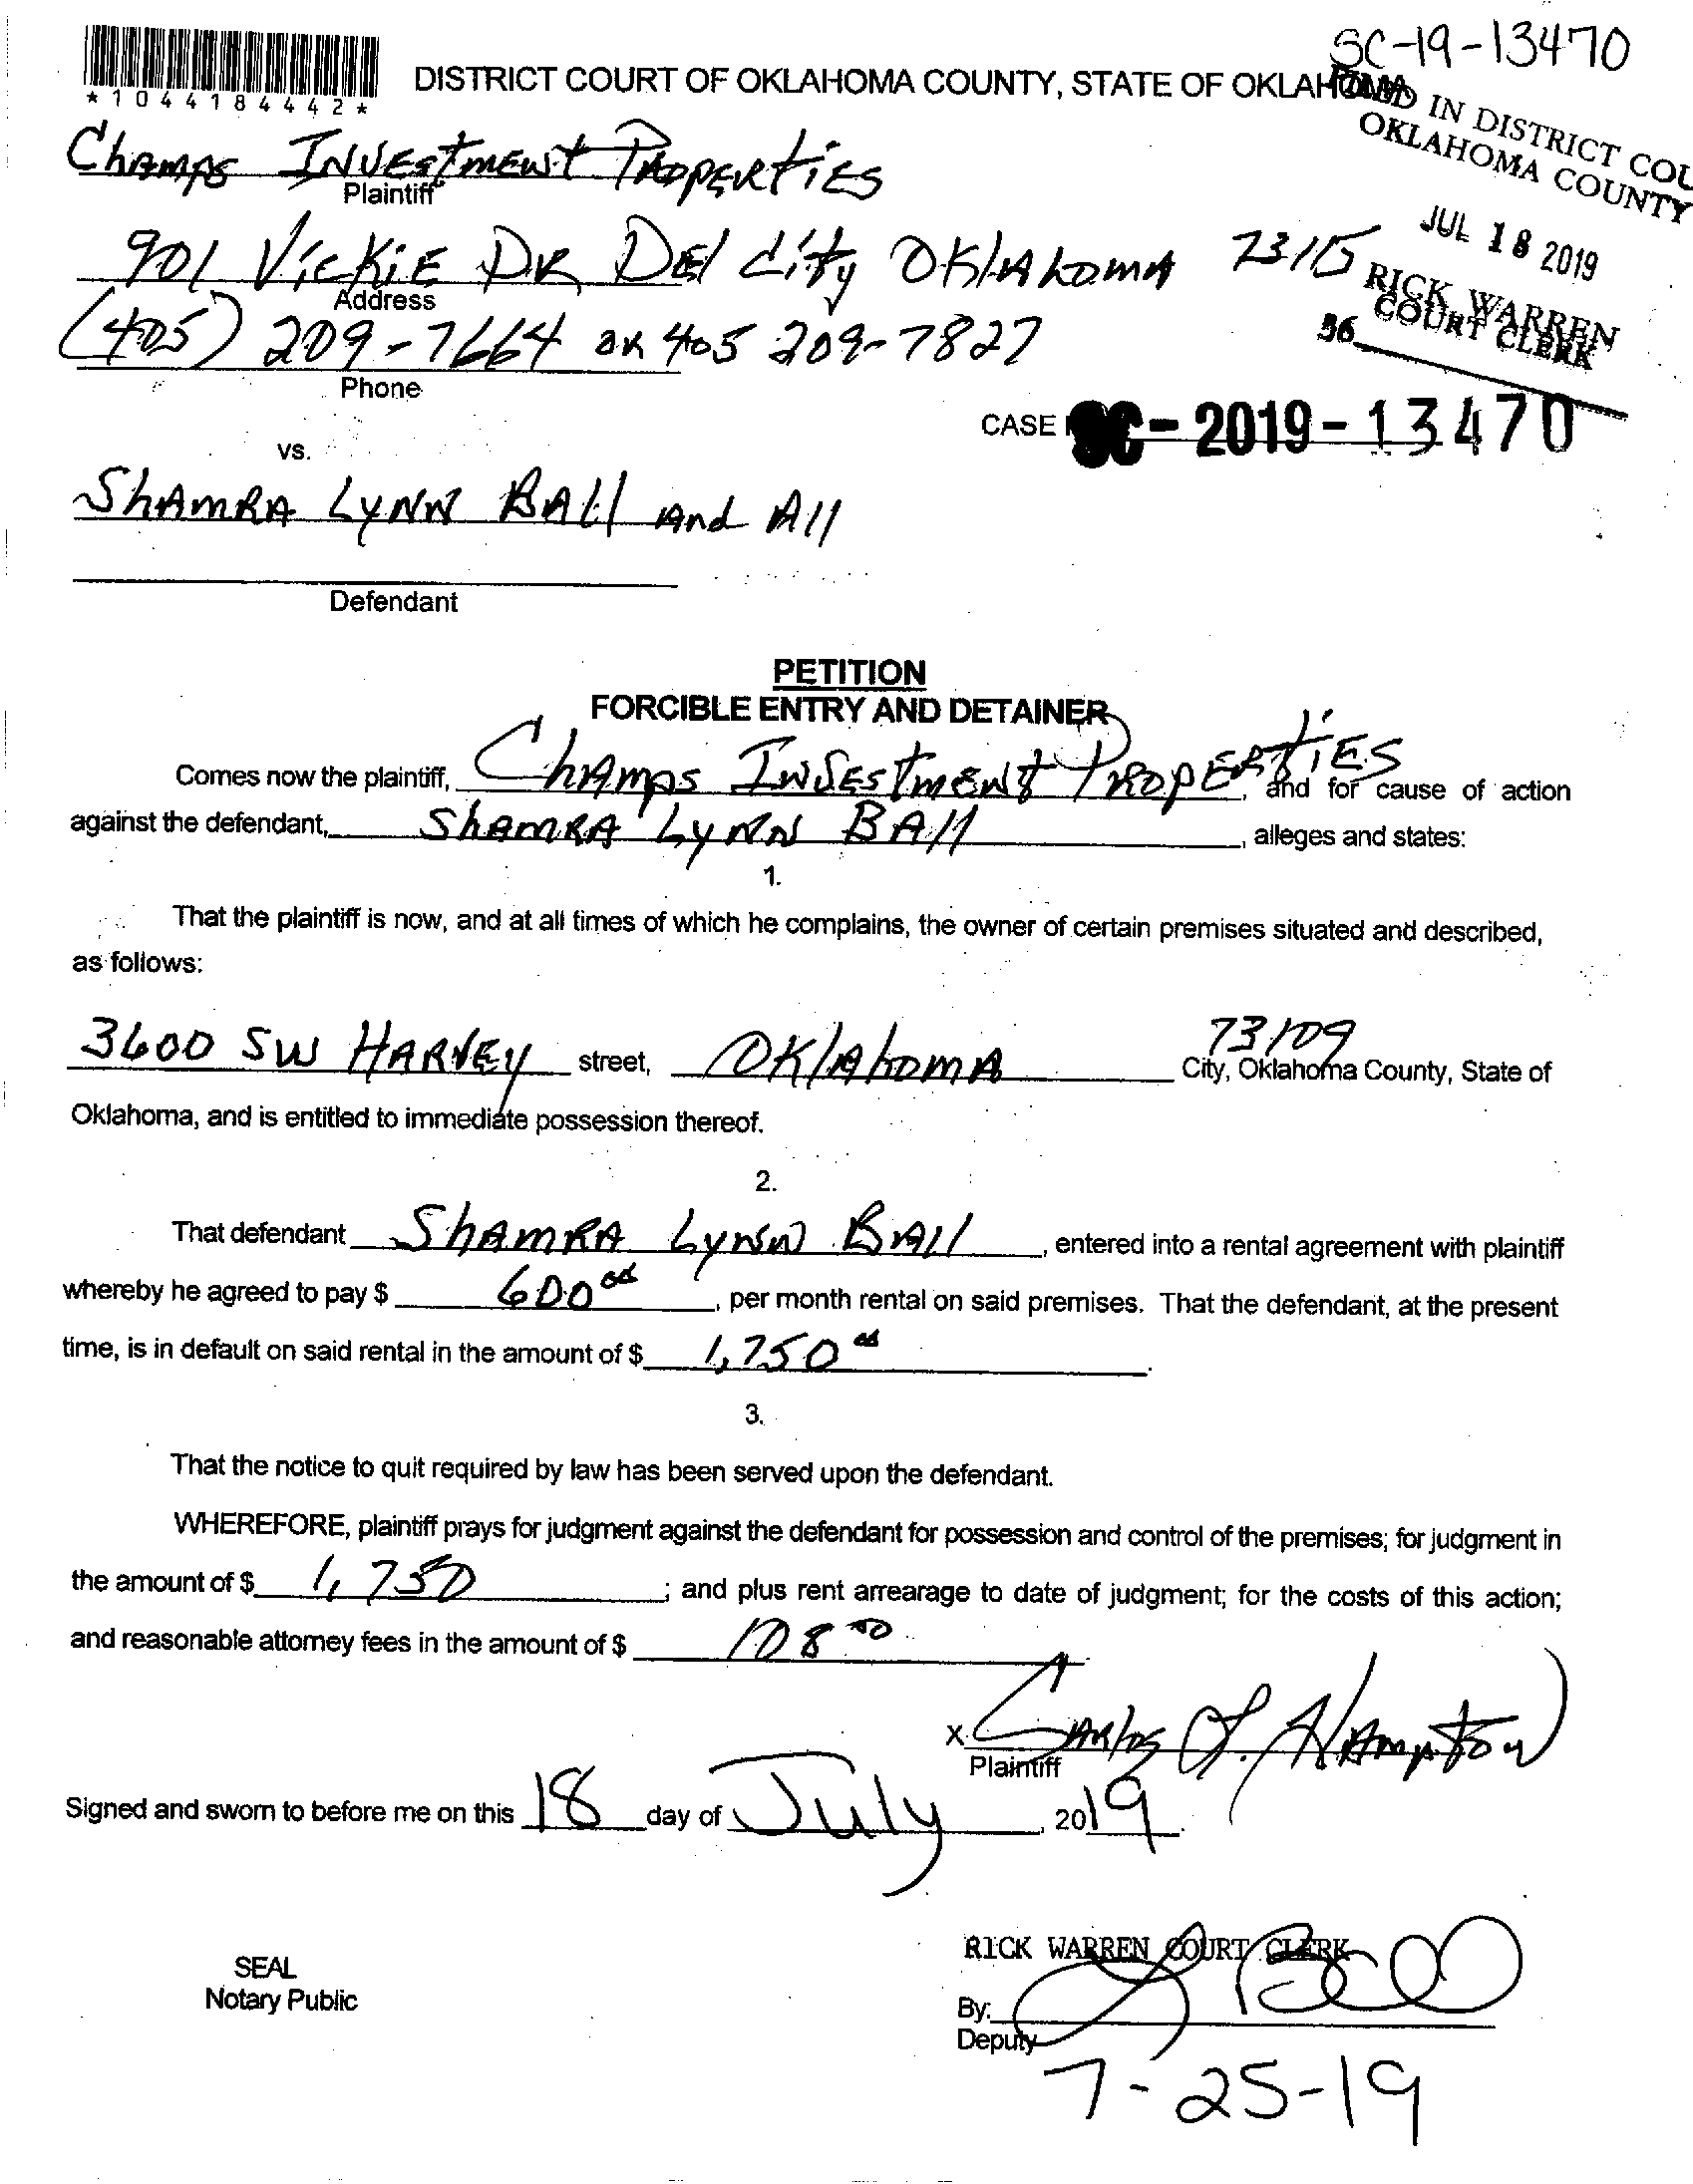 SC-19-13470
*1044184442*
DISTRICT COURT OF OKLAHOMA COUNTY, STATE OF OKLAHOMA
FILED IN DISTRICT COU
OKLAHOMA COUNTY
Champs Investment Properties
Plaintiff
JUL 18 2019
901 Vickie DR Del City Oklahoma 73115
Address
RICK WARREN
COURT CLERK
36
(405) 209-7664 or 405 209-7827
Phone
CASE SC-2019-13470
vs.
Shamra Lynn Ball And All
Defendant
PETITION
FORCIBLE ENTRY AND DETAINER
Comes now the plaintiff, Champs Investment Properties, and for cause of action
against the defendant, Shamra Lynn Ball, alleges and states:
1.
That the plaintiff is now, and at all times of which he complains, the owner of certain premises situated and described,
as follows:
73109
3600 SW HARVEY street, Oklahoma City, Oklahoma County, State of
Oklahoma, and is entitled to immediate possession thereof.
2.
That defendant Shamra Lynn Ball, entered into a rental agreement with plaintiff
whereby he agreed to pay $ 600 00, per month rental on said premises. That the defendant, at the present
time, is in default on said rental in the amount of $ 1,750 00.
3.
That the notice to quit required by law has been served upon the defendant.
WHEREFORE, plaintiff prays for judgment against the defendant for possession and control of the premises; for judgment in
the amount of $ 1,750; and plus rent arrearage to date of judgment; for the costs of this action;
and reasonable attorney fees in the amount of $ 108 00
X Carlos L. Hampton
Plaintiff
Signed and sworn to before me on this 18 day of July, 2019.
RICK WARREN COURT CLERK
SEAL
Notary Public
By:
Deputy
7-25-19